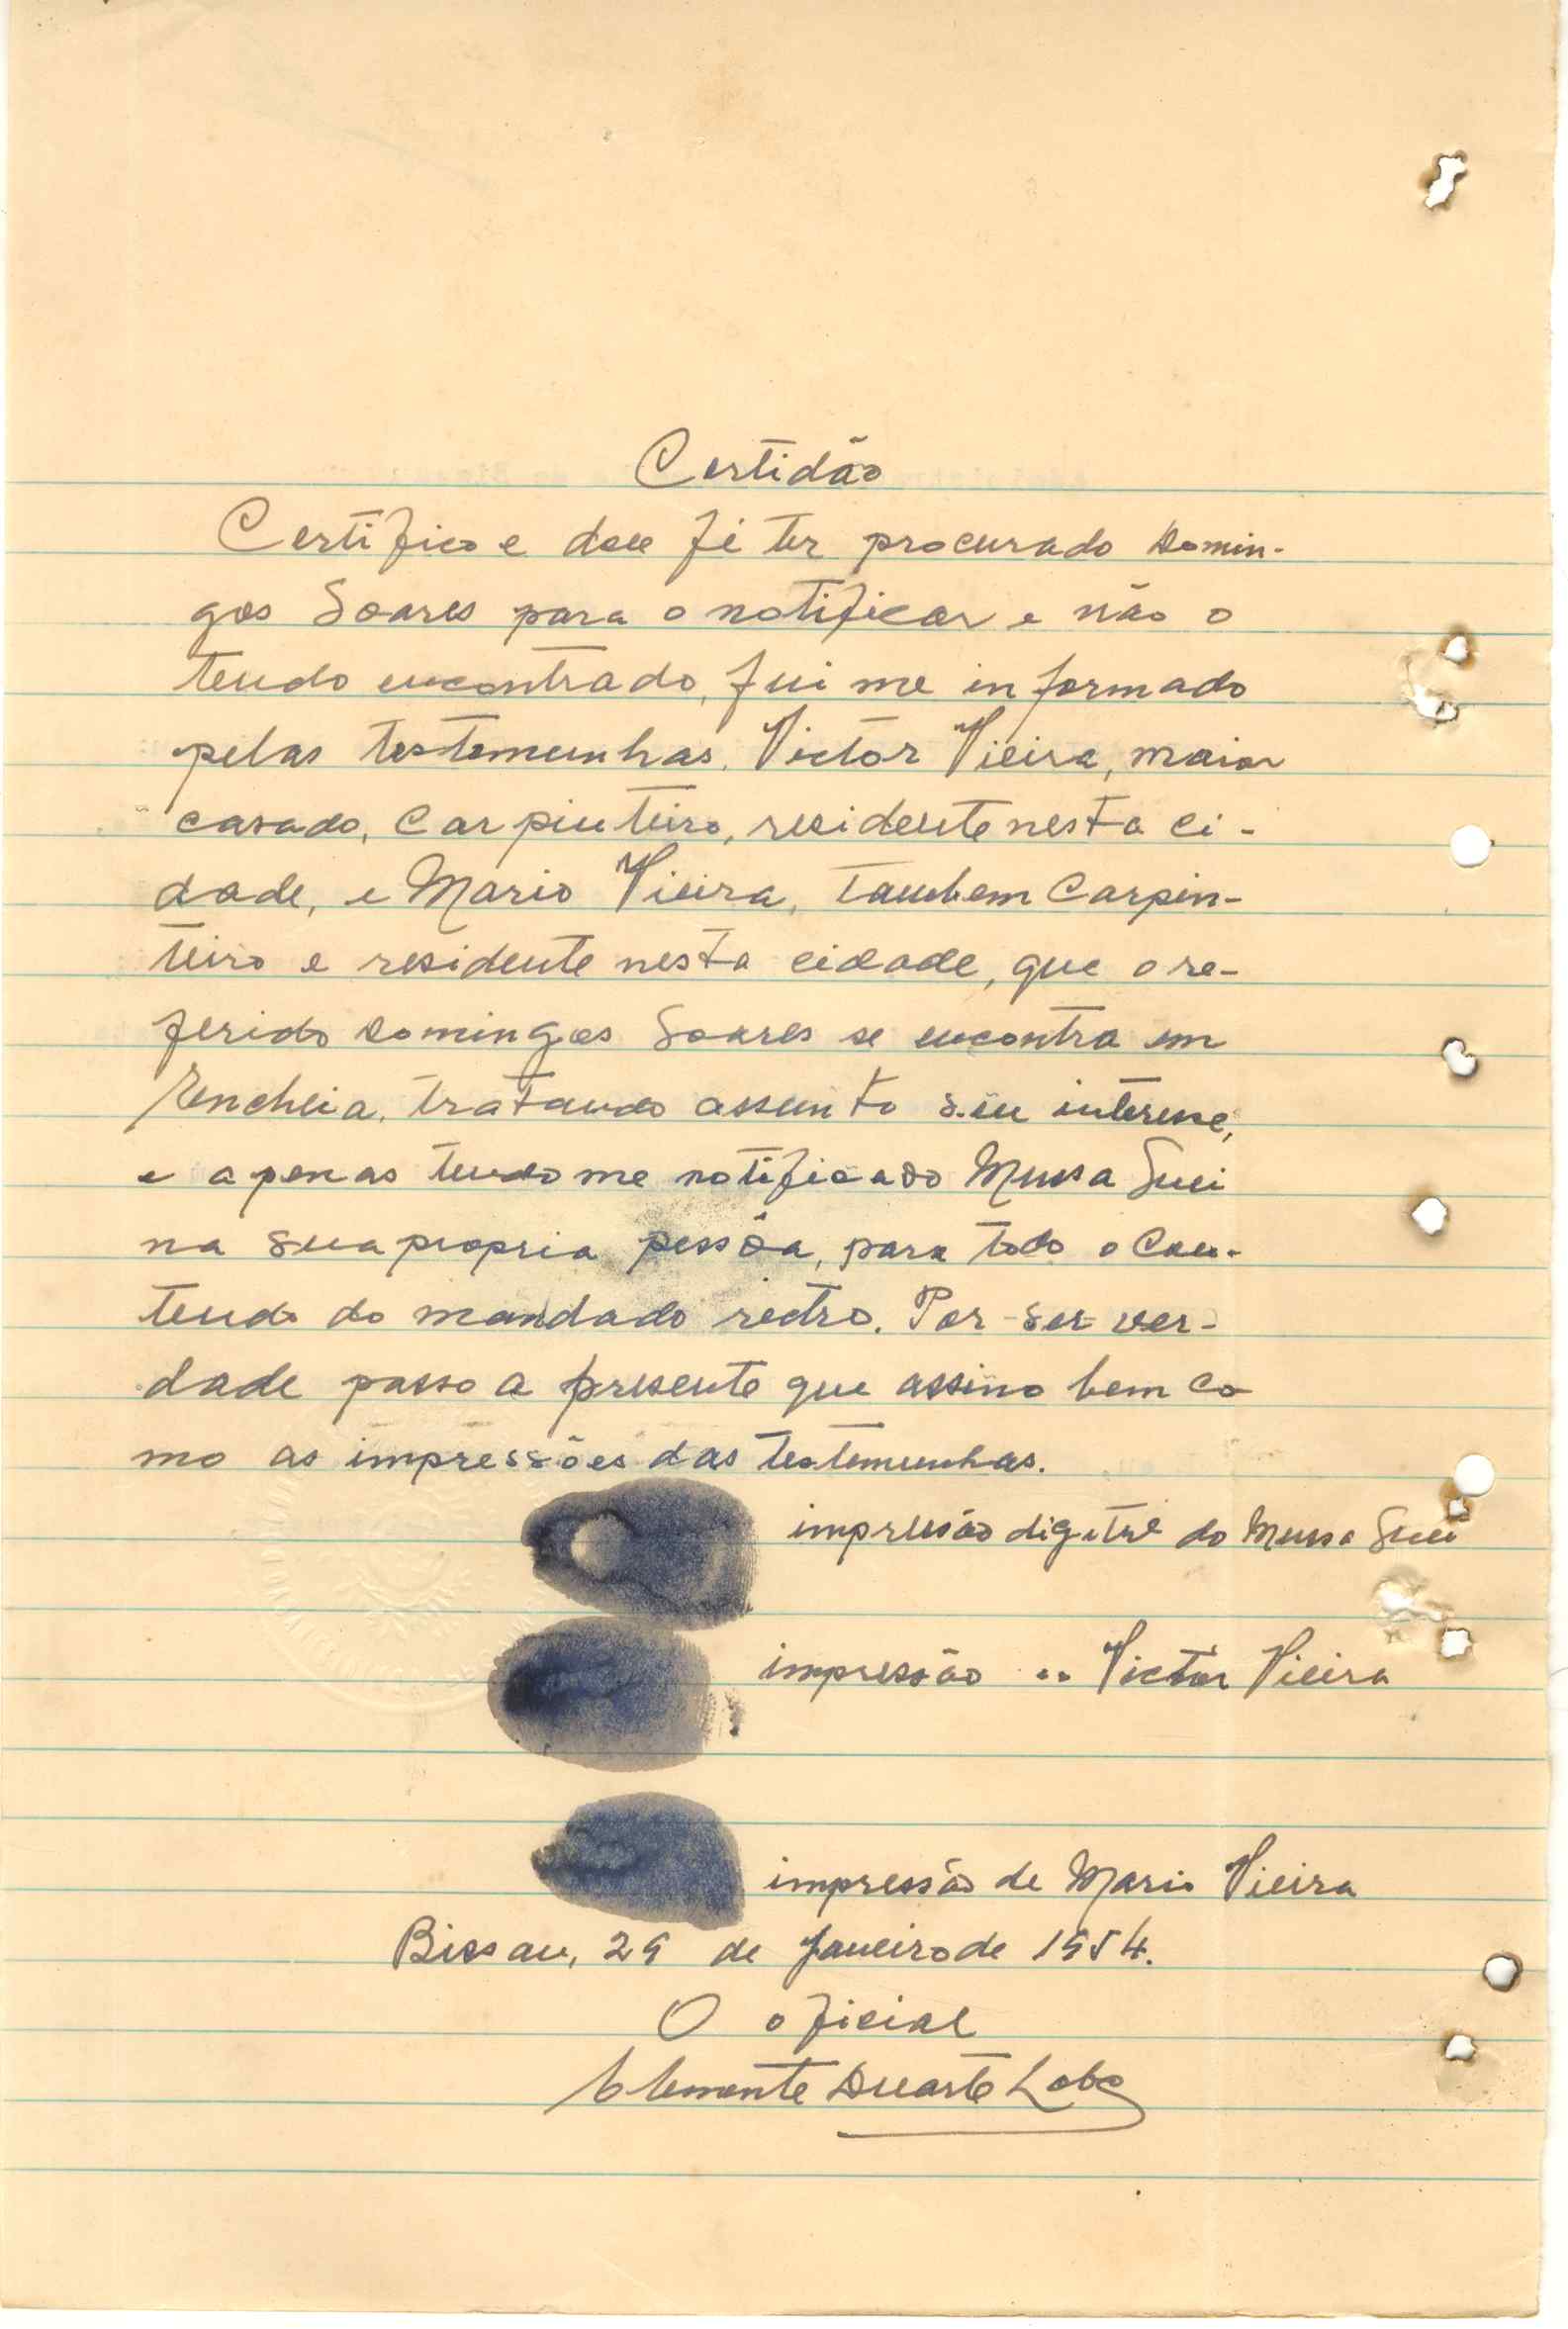 Certidão
Certifico e dou fé ter procurado Domin-
gos Soares para o notificar e não o
tendo encontrado, fui me informado
pelas testemunhas, Victor Vieira, maior
casado, Carpinteiro, residente nesta ci-
dade, e Mario Vieira, tambem Carpin-
teiro e residente nesta cidade, que o re-
ferido Domingos Soares se encontra em
Encheia, tratando assunto seu interesse,
e apenas tendo me notificado Mussa Suei
na sua propria pessôa, para todo o Con-
teudo do mandado rectro. Por ser ver-
dade passo a presente que assino bem co
mo as impressões das testemunhas.
impressão digital do Mussa Suei
impressão " Victor Vieira
impressão de Mario Vieira
Bissau, 29 de Janeiro de 1954.
O oficial
Clemente Duarte Lobo